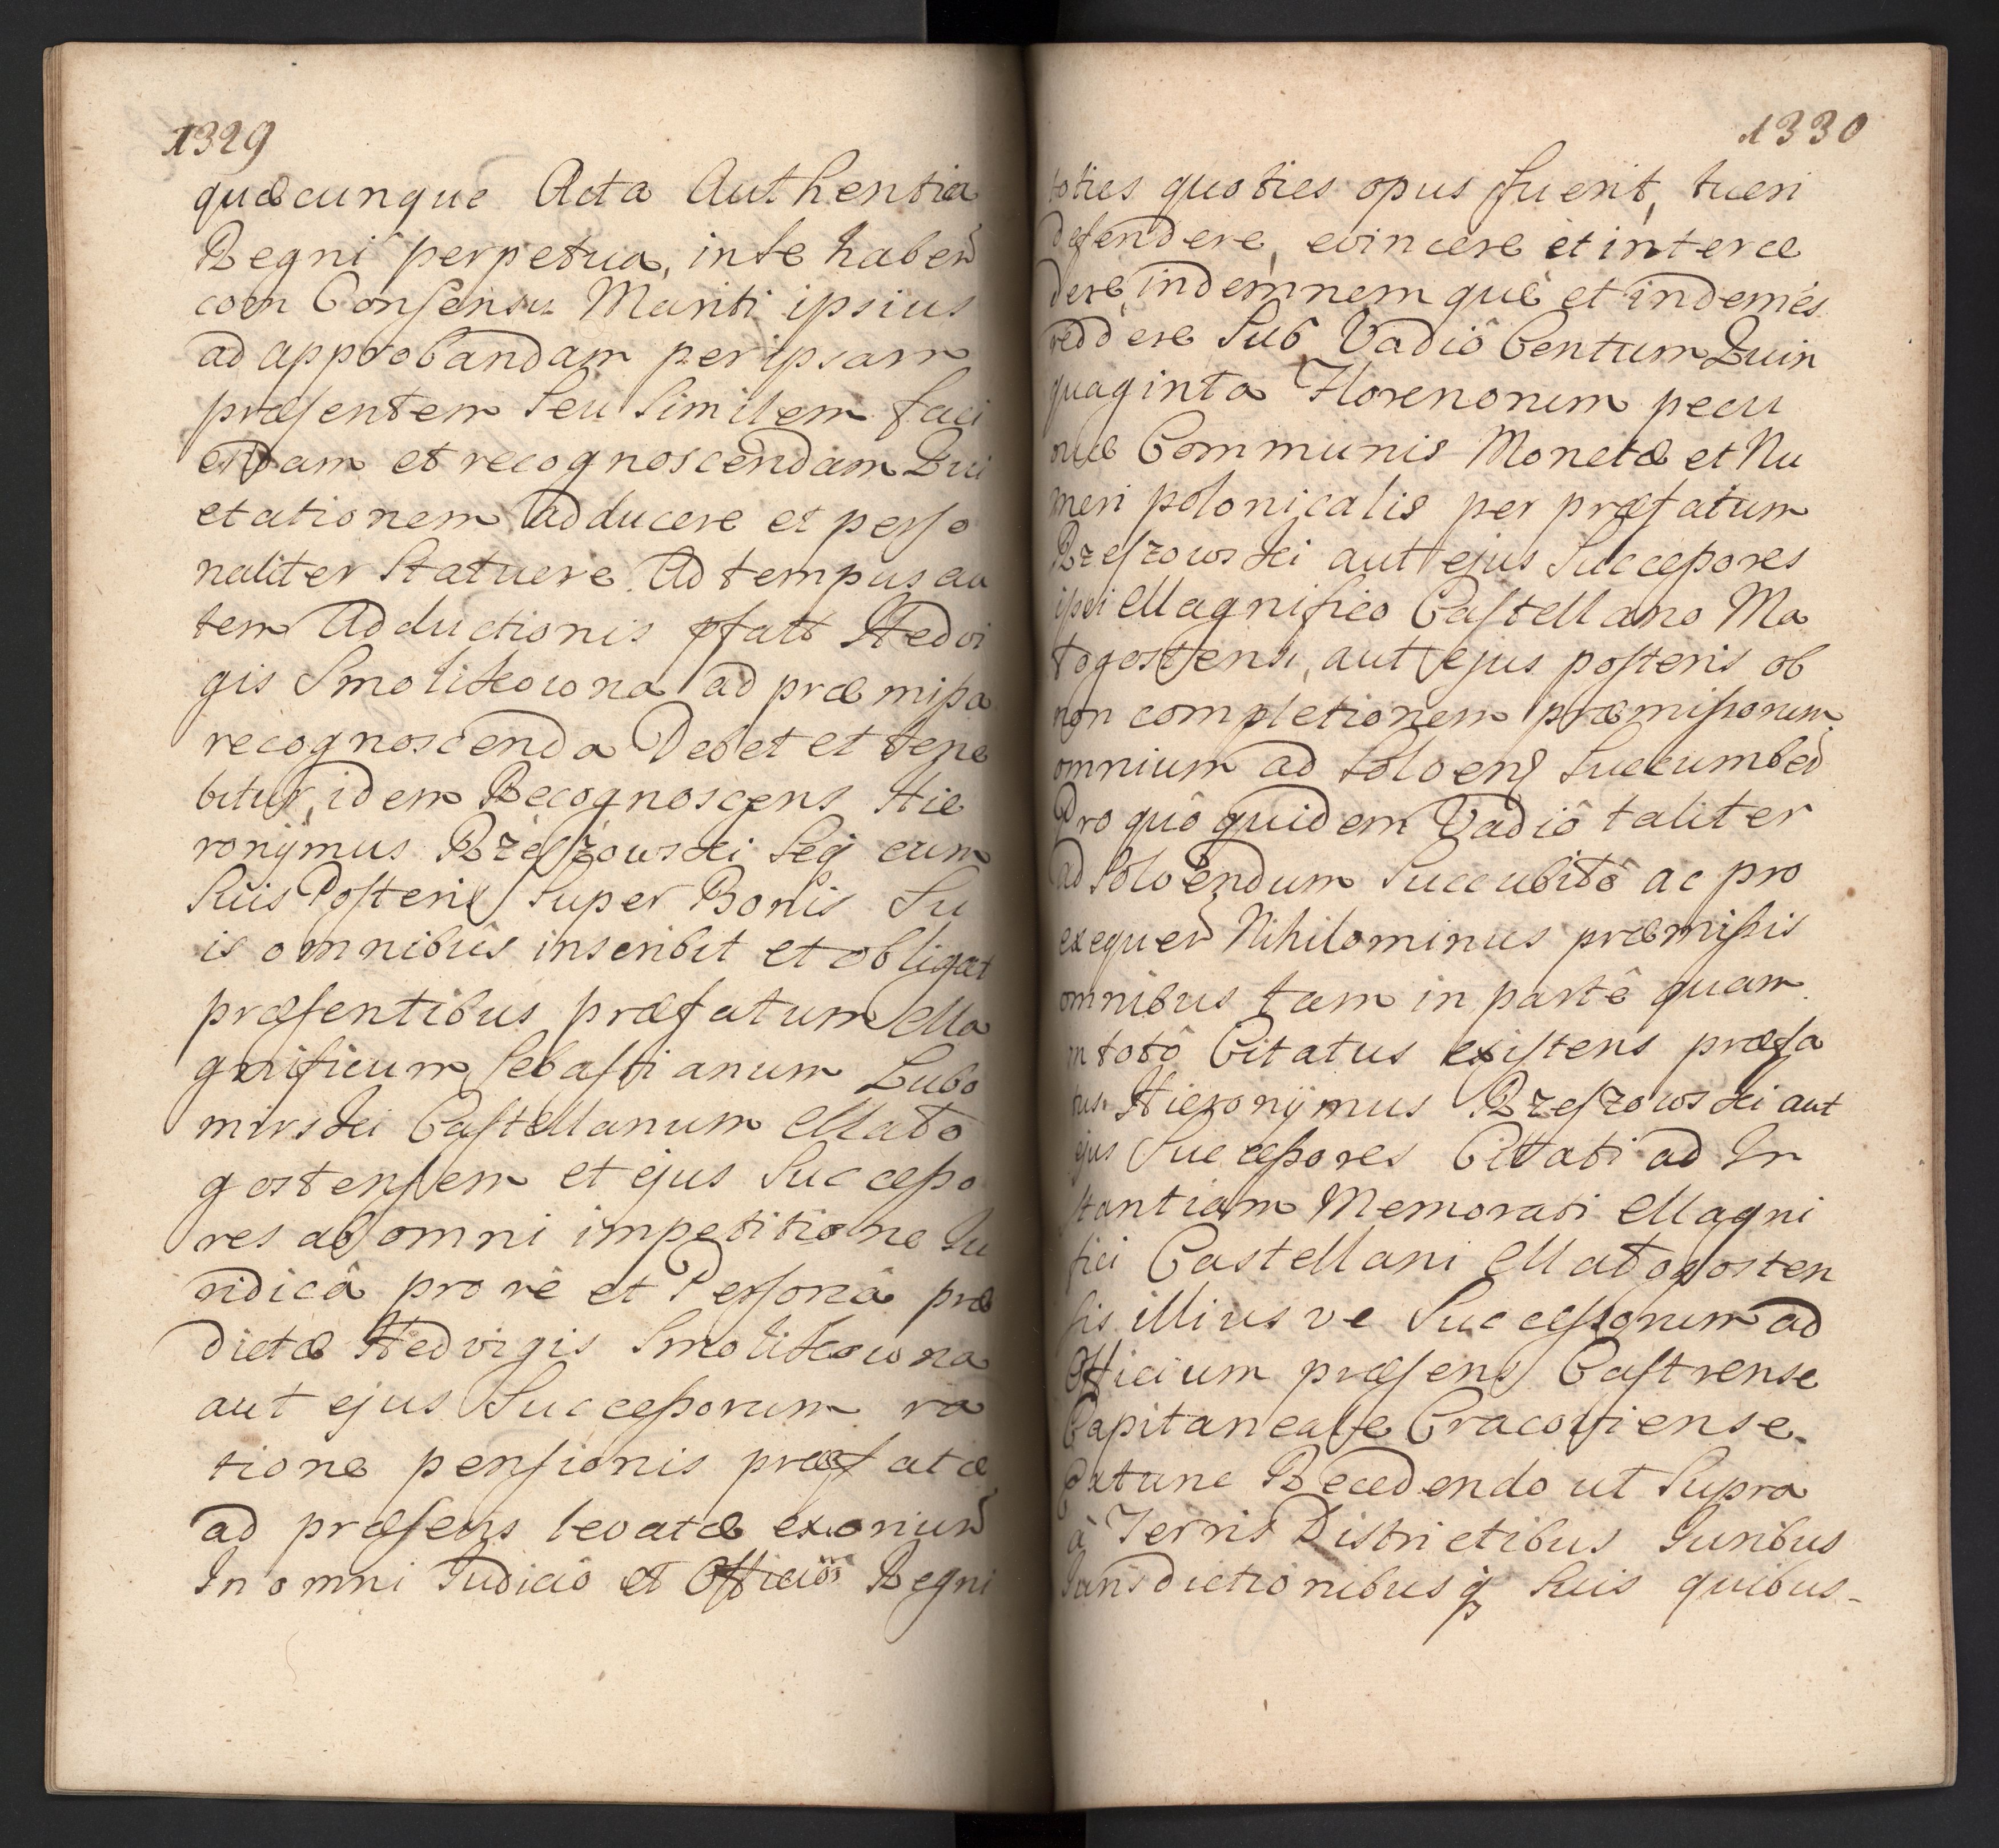 1329
quæcunque Acta Authentica
Regni perpetua, inse haben
cum Consensu Mariti ipsius
ad approbandam per ipsam
præsentem seu similem faci
endam et recognoscendam Qui
etationem adducere et perso
naliter statuere. Ad tempus au
tem Adductionis pfatt Hedvi
gis Smolikowna ad præmissa
recognoscenda Debet et tene
bitur, idem Recognoscens Hie
ronÿmus Rzeszowski seq cum
suis Posteris super Bonis Su
is omnibus inscribit et obligat
præsentibus præfatum Ma
gnificum Sebastianum Lubo
mirski Castellanum Mało
gostensem et ejus Successo
res ab omni impetitione Ju
ridicâ pro rê et Personâ præ
dictæ Hedvigis Smolikowna
aut ejus Successorum ra
tione pensionis præfatæ
ad præsens levatæ exoriun
In omni Judiciô et Officiô Regni
1330
toties quoties opus fuerit, tueri
defendere, evincere et interce
dere, indemnem quê et indemēs
reddere Sub Vadiô Centum Quin
quaginta Florenorum pecu
niæ Communis Monetæ et Nu
meri polonicalis per præfatum
Rzeszowski aut ejus Successores
ipsi Magnifico Castellano Ma
łogostensi, aut ejus posteris ob
non completionem præmissorum
omnium ad solvens succumben
Pro quô quidem Vadiô taliter
ad solvendum succubitô ac pro
exequen Nihilominus præmissis
omnibus tam in partê quam
in totô Citatus existens præfa
tus Hieronÿmus Rzeszowski aut
ejus Successores Citati ad In
stantiam Memorati Magni
fici Castellani Małogosten
sis illius ve Successorum ad
Officium præsens Castrense
Capitaneale Cracoviense
Extunc Recedendo ut supra
à Terris Districtibus Juribus
Jurisdictionibusq suis quibus-